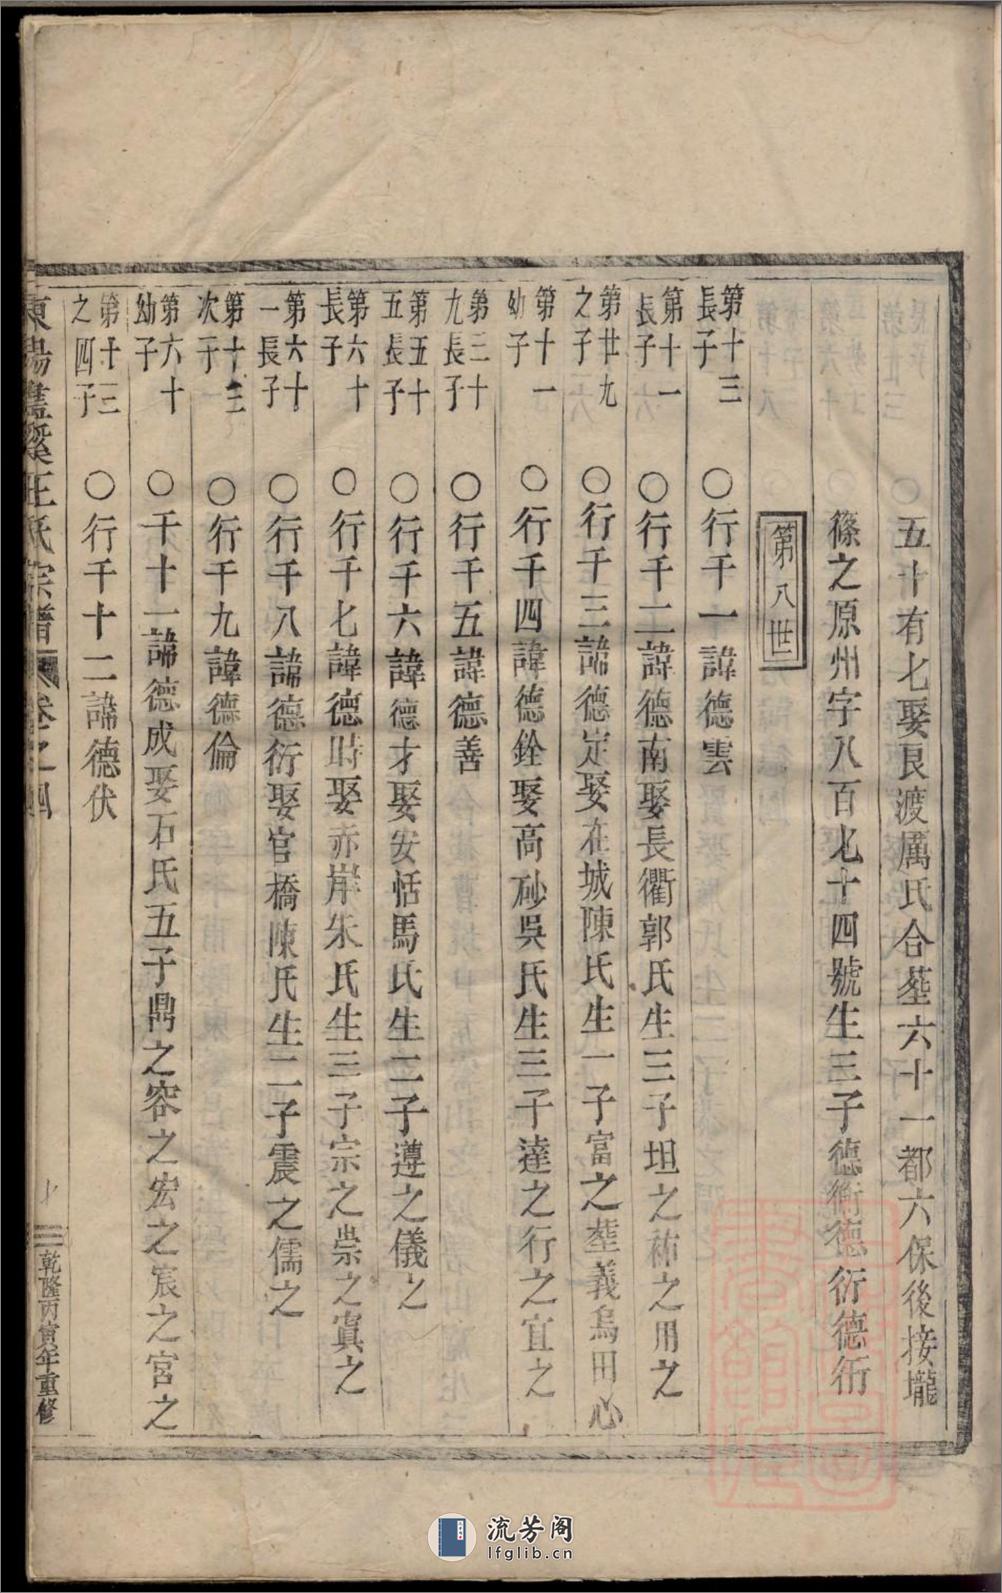 五十有七娶良渡厲氏合塟六十一都六保後接壠
篠之原州字八百七十四號生三子德衛德衍德術
第八世
第十三長子
○行千一諱德雲
第十一長子
○行千二諱德南娶長衢郭氏生三子坦之祐之用之
第廿九之子
○行千三諱德定娶在城陳氏生一子富之塟義烏田心
第十一幼子
○行千四諱德銓娶高砂吳氏生三子達之行之宜之
第三十九長子
○行千五諱德善
第五十五長子
○行千六諱德才娶安恬馬氏生二子遵之儀之
第六十長子
○行千七諱德時娶赤岸朱氏生三子宗之崇之寘之
第六十一長子
○行千八諱德衍娶官橋陳氏生二子震之儒之
第十三次子
○行千九諱德倫
第六十幼子
○千十一諱德成娶石氏五子鼎之容之宏之宸之宮之
第十三之四子
○行千十二諱德伏
東陽雅溪王氏宗譜 卷之四
乾隆丙寅年重修
流芳阁
lfglib.cn